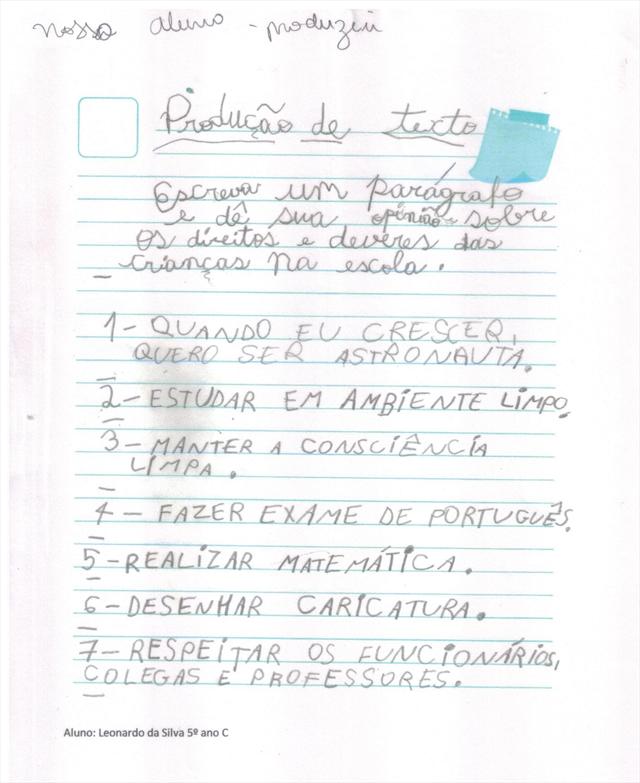 nosso aluno - produziu
Produção de texto
Escreva um parágrafo
e dê sua opinião sobre
os direitos e deveres das
crianças na escola.
1- QUANDO EU CRESCER,
QUERO SER ASTRONAUTA.
2- ESTUDAR EM AMBIENTE LIMPO.
3- MANTER A CONSCIÊNCIA
LIMPA.
4- FAZER EXAME DE PORTUGUÊS.
5-REALIZAR MATEMÁTICA.
6-DESENHAR CARICATURA.
7-RESPEITAR OS FUNCIONÁRIOS,
COLEGAS E PROFESSORES.
Aluno: Leonardo da Silva 5º ano C